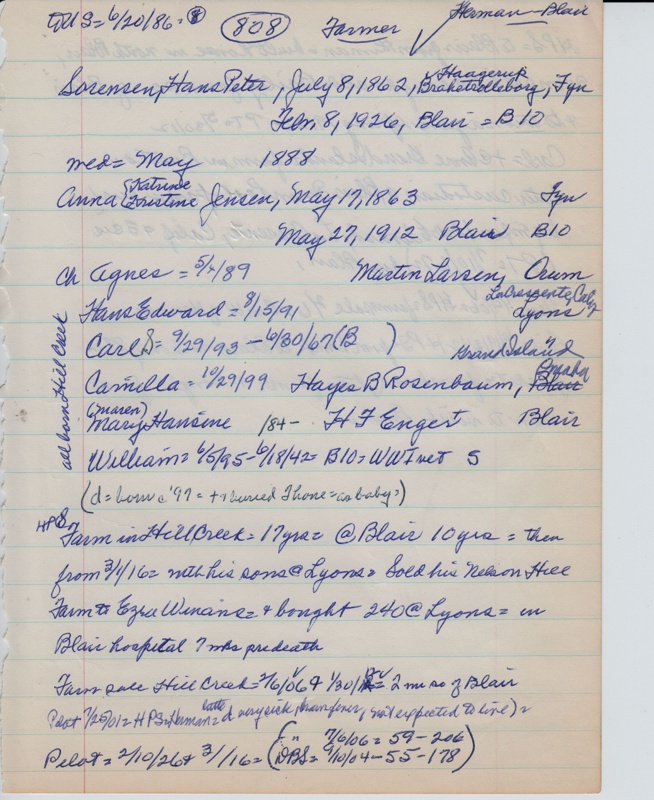 TUS=6/20/86=8 808 Farmer Herman-Blair
Sorensen, Hans Peter, July 8, 1862, Haagerup Brahetrolleborg, Fyn
Feb. 8, 1926, Blair = B10
med= May 1888
Anna (Katrine Kristine Jensen, May 17, 1863 Fyn
May 27, 1912 Blair B10
Ch Agnes = 5/4/89 Martin Larsen, Orum
Hans Edward = 8/15/91 La Crescente, Calif Lyons
Carl S = 9/29/93 - 6/30/67 (B )
Grand Island
Camilla = 10/29/99 Hayes B Rosenbaum, Omaha Blair
(maren)
Mary Hansine /84- H F Engert Blair
William = 6/5/95-6/18/42 = B10 = WWI vet S
(d = born c '97 = + buried Thone = as baby =)
all born Hill Creek
HPS
Farm in Hill Creek = 17yrs = @Blair 10yrs = then
from 3/1/16 = with his sons @ Lyons = Sold his Nelson Hill
Farm to Ezra Winans = & bought 240 @ Lyons = in
Blair hospital 7 wks predeath
Farm sale Hill Creek = 2/6/06 & 1/30/ = 2 mi so of Blair
Pilot 7/25/01 = HPS = Herman = latte d very sick, brain fever, not expected to live) =
Pilot = 2/10/26 & 3/1/16 = ( " 7/6/06 = 59-206
DBS = 9/10/04-55-178)